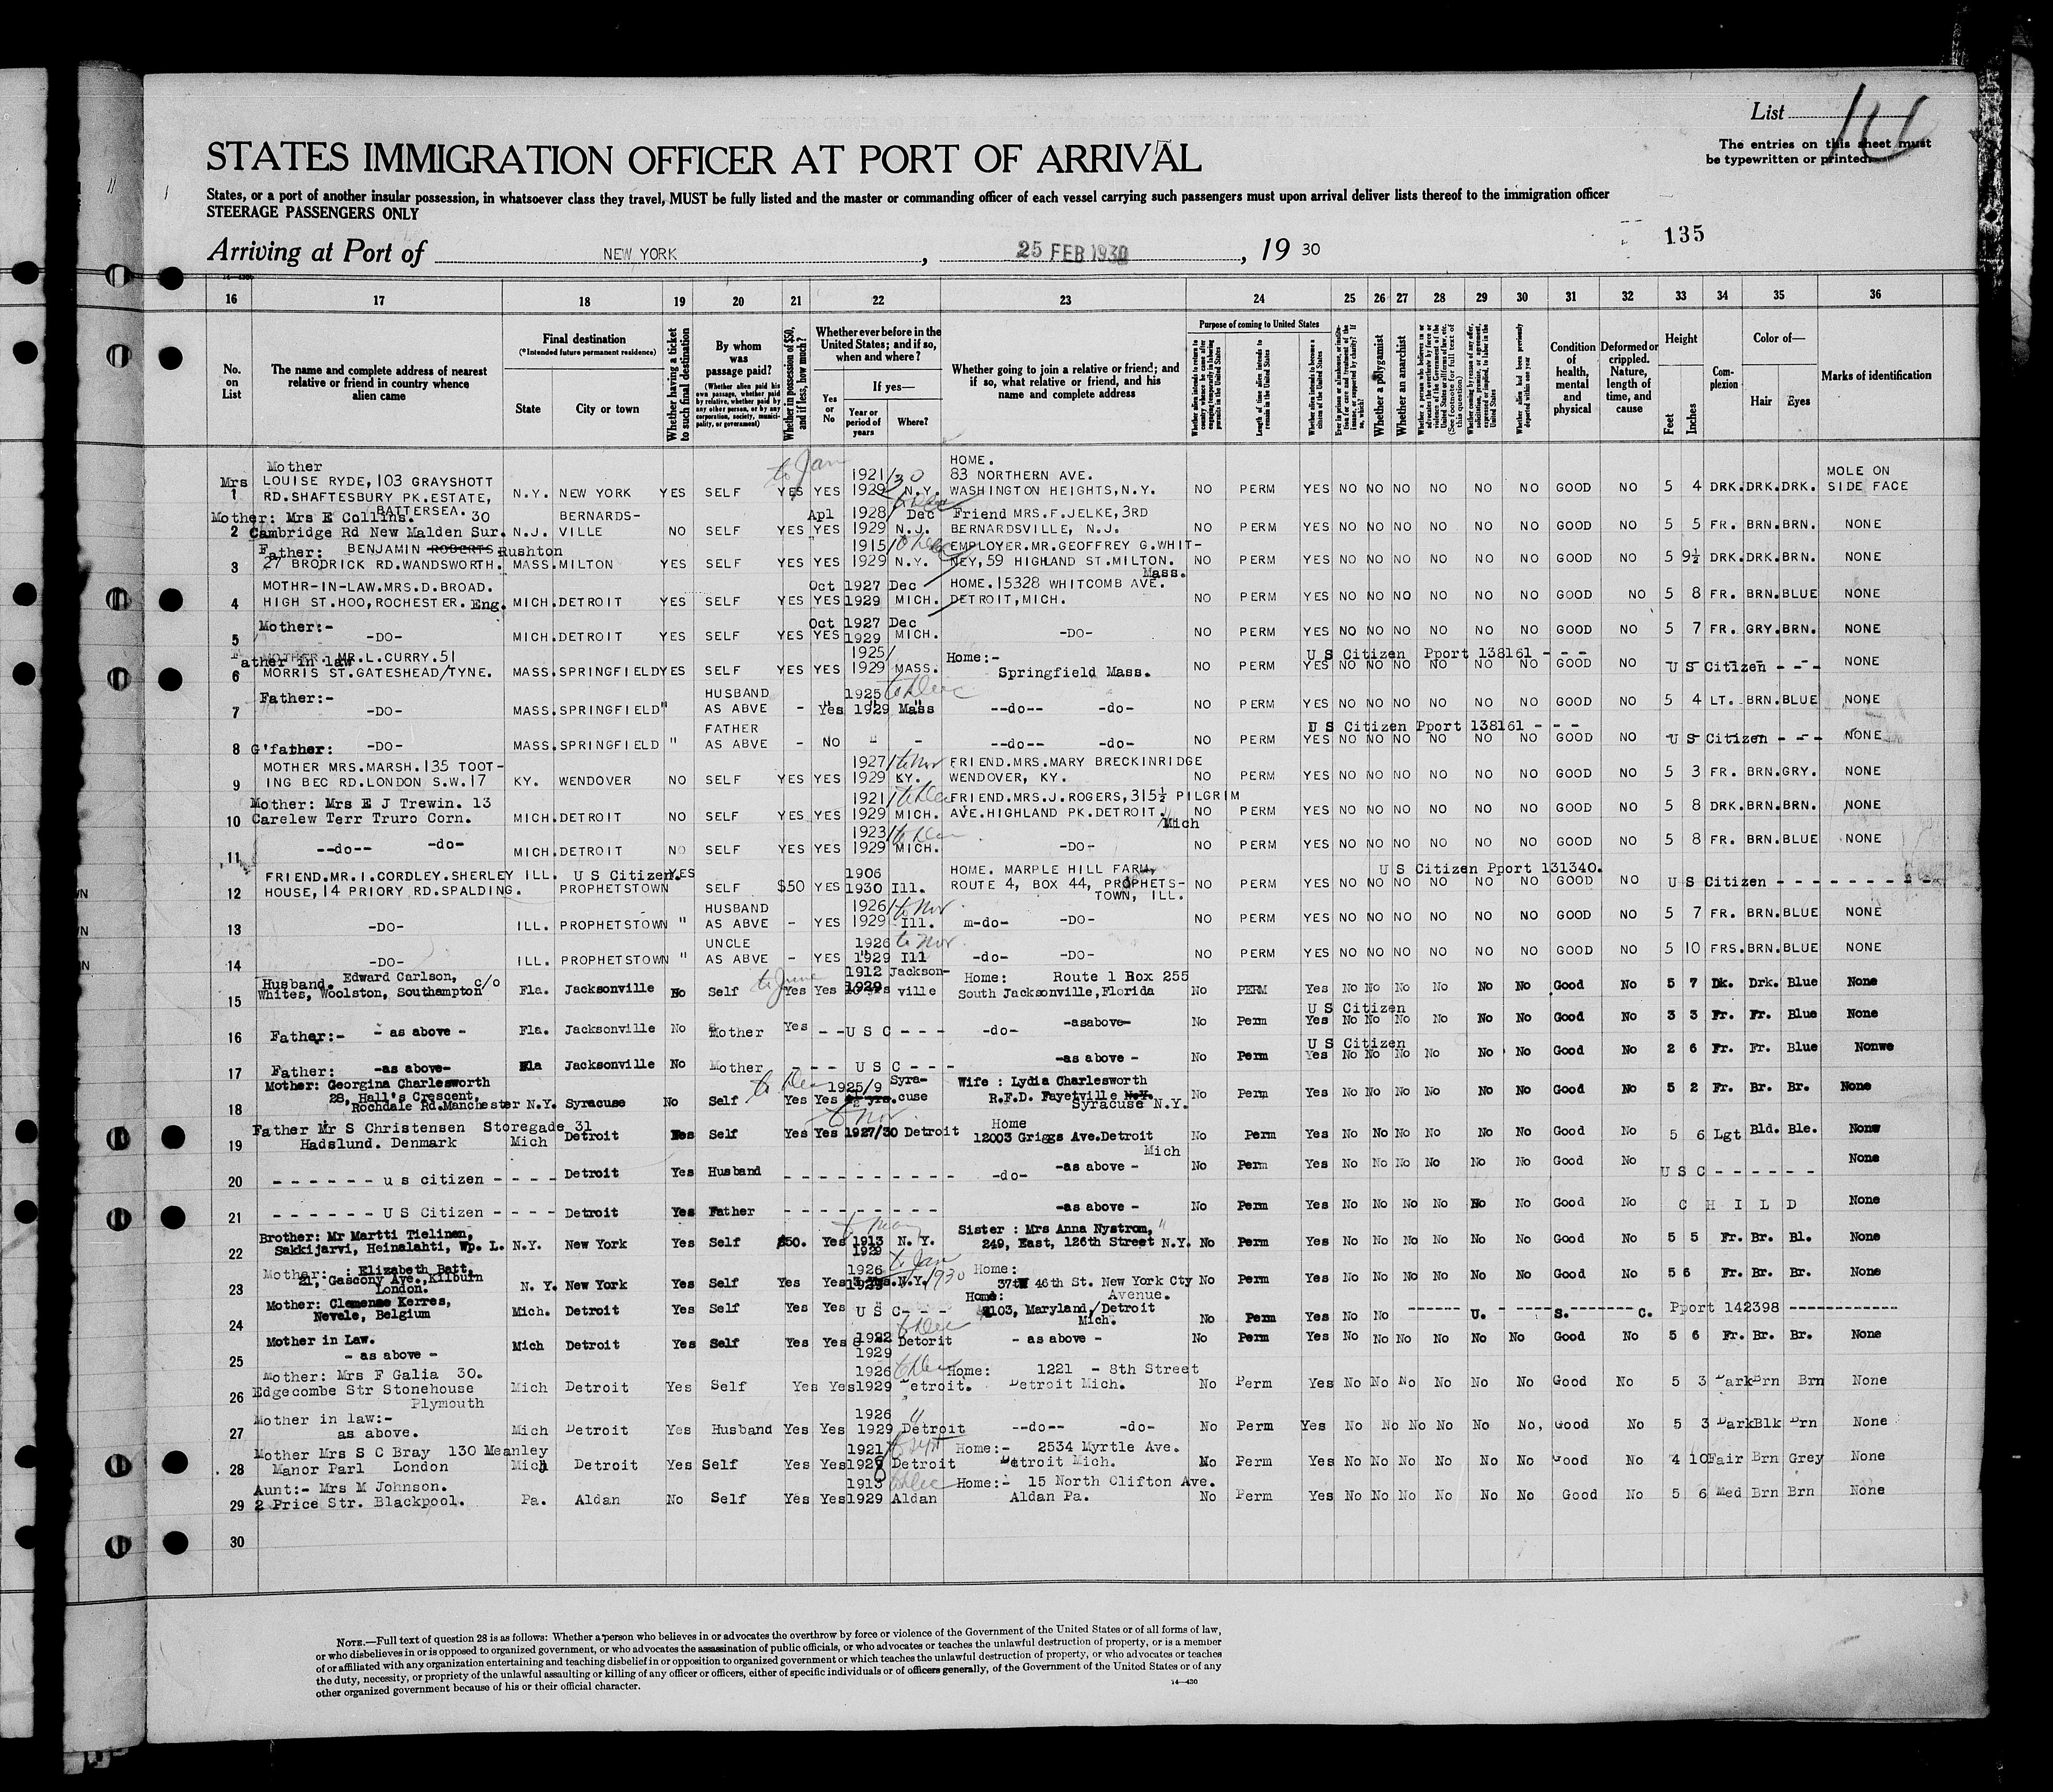 List
The entries on this sheet must
be typewritten or printed.
STATES IMMIGRATION OFFICER AT PORT OF ARRIVAL
States, or a port of another insular possession, in whatsoever class they travel, MUST be fully listed and the master or commanding officer of each vessel carrying such passengers must upon arrival deliver lists thereof to the immigration officer
STEERAGE PASSENGERS ONLY
135
Arriving at Port of NEW YORK, 25 FEB 1930, 19 30
16 17 18 19 20 21 22 23 24 25 26 27 28 29 30 31 32 33 34 35 36
No. on List
The name and complete address of nearest relative or friend in country whence alien came
Final destination
(*Intended future permanent residence)
State
City or town
Whether having a ticket to such final destination
By whom was passage paid?
(Whether alien paid his own passage, whether paid by relative, whether paid by any other person, or by any corporation, society, municipality, or government)
Whether in possession of $50, and if less, how much?
Whether ever before in the United States; and if so, when and where?
Yes or No
If yes—
Year or period of years
Where?
Whether going to join a relative or friend; and if so, what relative or friend, and his name and complete address
Purpose of coming to United States
Length of time alien intends to remain in the United States
Whether alien intends to become a citizen of the United States
Whether a polygamist
Whether an anarchist
Condition of health, mental and physical
Deformed or crippled. Nature, length of time, and cause
Height
Feet
Inches
Complexion
Color of—
Hair
Eyes
Marks of identification
Mrs 1 Mother LOUISE RYDE, 103 GRAYSHOTT RD. SHAFTESBURY PK. ESTATE, BATTERSEA. N.Y. NEW YORK YES SELF YES YES 1921/30 1929 N.Y. to Jan HOME. 83 NORTHERN AVE. WASHINGTON HEIGHTS, N.Y. NO PERM YES NO NO NO NO NO NO GOOD NO 5 4 DRK. DRK. DRK. MOLE ON SIDE FACE
2 Mother: Mrs E Collins. 30 Cambridge Rd New Malden Sur. N.J. BERNARDS-VILLE NO SELF YES YES Apl 1928 Dec 1929 N.J. Friend MRS. F. JELKE, 3RD BERNARDSVILLE, N.J. NO PERM YES NO NO NO NO NO NO GOOD NO 5 5 FR. BRN. BRN. NONE
3 Father: BENJAMIN ROBERTS Rushton 27 BRODRICK RD. WANDSWORTH. MASS. MILTON YES SELF YES YES 1915/ 1929 N.Y. to Dec EMPLOYER. MR. GEOFFREY G. WHIT-NEY, 59 HIGHLAND ST. MILTON. Mass. NO PERM YES NO NO NO NO NO NO GOOD NO 5 9½ DRK. DRK. BRN. NONE
4 MOTHR-IN-LAW. MRS. D. BROAD. HIGH ST. HOO, ROCHESTER. Eng. MICH. DETROIT YES SELF YES YES Oct 1927 Dec 1929 MICH. HOME. 15328 WHITCOMB AVE. DETROIT, MICH. NO PERM YES NO NO NO NO NO NO GOOD NO 5 8 FR. BRN. BLUE NONE
5 Mother:- -DO- MICH. DETROIT YES SELF YES YES Oct 1927 Dec 1929 MICH. -DO- NO PERM YES NO NO NO NO NO NO GOOD NO 5 7 FR. GRY. BRN. NONE
6 Father in law MOTHER. MR. L. CURRY. 51 MORRIS ST. GATESHEAD/TYNE. MASS. SPRINGFIELD YES SELF YES YES 1925/ 1929 MASS. Home:- Springfield Mass. NO PERM YES NO NO NO NO NO NO GOOD NO U S Citizen Pport 138161 - - - U S Citizen - - - NONE
7 Father:- -DO- MASS. SPRINGFIELD " HUSBAND AS ABVE - Yes 1925 1929 Mass to Dec --do-- -do- NO PERM YES NO NO NO NO NO NO GOOD NO 5 4 LT. BRN. BLUE NONE
8 G'father: -DO- MASS. SPRINGFIELD " FATHER AS ABVE - NO " - --do-- -do- NO PERM YES NO NO NO NO NO NO GOOD NO U S Citizen Pport 138161 - - - U S Citizen - - - NONE
9 MOTHER MRS. MARSH. 135 TOOT-ING BEC RD. LONDON S.W.17 KY. WENDOVER NO SELF YES YES 1927/ to Nov 1929 KY. FRIEND. MRS. MARY BRECKINRIDGE WENDOVER, KY. NO PERM YES NO NO NO NO NO NO GOOD NO 5 3 FR. BRN. GRY. NONE
10 Mother: Mrs E J Trewin. 13 Carelew Terr Truro Corn. MICH. DETROIT NO SELF YES YES 1921/ to Dec 1929 MICH. FRIEND. MRS. J. ROGERS, 315½ PILGRIM AVE. HIGHLAND PK. DETROIT. Mich NO PERM YES NO NO NO NO NO NO GOOD NO 5 8 DRK. BRN. BRN. NONE
11 --do-- -do- MICH. DETROIT NO SELF YES YES 1923/ 1929 MICH. -DO- NO PERM YES NO NO NO NO NO NO GOOD NO 5 8 FR. BRN. BLUE NONE
12 FRIEND. MR. I. CORDLEY. SHERLEY HOUSE, 14 PRIORY RD. SPALDING. ILL. U S Citizen. PROPHETSTOWN YES SELF $50 YES 1906 1930 Ill. HOME. MARPLE HILL FARM, ROUTE 4, BOX 44, PROPHETS-TOWN, ILL. NO PERM YES NO NO NO NO NO NO GOOD NO U S Citizen Pport 131340. U S Citizen - - - - - - - - - -
13 -DO- ILL. PROPHETSTOWN " HUSBAND AS ABVE - YES 1926/ to Nov 1929 Ill. m-do- -DO- NO PERM YES NO NO NO NO NO NO GOOD NO 5 7 FR. BRN. BLUE NONE
14 -DO- ILL. PROPHETSTOWN " UNCLE AS ABVE - YES 1926 to Nov 1929 Ill -do- -DO- NO PERM YES NO NO NO NO NO NO GOOD NO 5 10 FRS. BRN. BLUE NONE
15 Husband. Edward Carlson, c/o Whites, Woolston, Southampton Fla. Jacksonville No Self to June Yes Yes 1912 1929 Jackson-ville Home: Route 1 Box 255 South Jacksonville, Florida No PERM Yes No No No No No No Good No 5 7 Dk. Drk. Blue None
16 Father:- - as above - Fla. Jacksonville No Mother Yes - - U S C - - - -do- -asabove- No Perm Yes U S Citizen No No No No No No Good No 3 3 Fr. Fr. Blue None
17 Father: -as above- Fla Jacksonville No Mother - - - U S C - - - -as above - No Perm Yes U S Citizen No No No No No No Good No 2 6 Fr. Fr. Blue Nonwe
18 Mother: Georgina Charlesworth 28, Hall's Crescent, Rochdale Rd. Manchester N.Y. Syracuse No Self to Dec Yes Yes 1925/9 Syra-cuse Wife : Lydia Charlesworth R.F.D. Fayetville N.Y. Syracuse N.Y. No Perm Yes No No No No No No Good No 5 2 Fr. Br. Br. None
19 Father Mr S Christensen Storegade 31 Hadslund. Denmark Mich Detroit Yes Self Yes Yes to Nov 1927/30 Detroit Home 12003 Griggs Ave. Detroit Mich No Perm Yes No No No No No No Good No 5 6 Lgt Bld. Ble. None
20 - - - - - - u s citizen - - - - Detroit Yes Husband - - - - - - - - - - -do- -as above - No Perm Yes No No No No No No Good No U S C - - - - - - None
21 - - - - - - U S Citizen - - - - Detroit Yes Father - - - - - - - - -as above - No Perm Yes No No No No No No Good No C H I L D None
22 Brother: Mr Martti Tielinen, Sakkijarvi, Heinalahti, Wp. L. N.Y. New York Yes Self $50. Yes 1913 N.Y. 1929 Sister : Mrs Anna Nystrom, 249, East, 126th Street N.Y. No Perm Yes No No No No No No Good No 5 5 Fr. Br. Bl. None
23 Mother: : Elizabeth Batt, 21, Gascony Ave., Kilburn London. N. Y. New York Yes Self Yes Yes 1926 N.Y. to Jan 1930 Home: 46th St. New York Cty Avenue. No Perm Yes No No No No No No Good No 5 6 Fr. Br. Br. None
24 Mother: Clemense Kerres, Nevele, Belgium Mich. Detroit Yes Self Yes Yes U S C- - - Home: 2103, Maryland, Detroit Mich. No Perm Yes No No ------ U. ------ S. ------ C. Pport 142398 ------------
25 Mother in Law. - as above - Mich Detroit Yes Self Yes Yes 1922 1929 Detorit to Dec - as above - No Perm Yes No No No No No No Good No 5 6 Fr. Br. Br. None
26 Mother: Mrs F Galia 30. Edgecombe Str Stonehouse Plymouth Mich Detroit Yes Self Yes Yes 1926 to Dec 1929 Detroit. Home: 1221 - 8th Street Detroit Mich. No Perm Yes No No No No No No Good No 5 3 Dark Brn Brn None
27 Mother in law:- as above. Mich Detroit Yes Husband Yes Yes 1926 " 1929 Detroit --do-- -do- No Perm Yes No No No No No No, Good No 5 3 Dark Blk Brn None
28 Mother Mrs S C Bray 130 Meanley Manor Parl London Mich Detroit Yes Self Yes Yes 1921/ to Sept 1928 Detroit Home:- 2534 Myrtle Ave. Detroit Mich. No Perm Yes No No No No No No Good No 4 10 Fair Brn Grey None
29 Aunt:- Mrs M Johnson. 2 Price Str. Blackpool. Pa. Aldan No Self Yes Yes 1913 to Dec 1929 Aldan Home:- 15 North Clifton Ave. Aldan Pa. No Perm Yes No No No No No No Good No 5 6 Med Brn Brn None
30
NOTE.—Full text of question 28 is as follows: Whether a person who believes in or advocates the overthrow by force or violence of the Government of the United States or of all forms of law,
or who disbelieves in or is opposed to organized government, or who advocates the assassination of public officials, or who advocates or teaches the unlawful destruction of property, or is a member
of or affiliated with any organization entertaining and teaching disbelief in or opposition to organized government or which teaches the unlawful destruction of property, or who advocates or teaches
the duty, necessity, or propriety of the unlawful assaulting or killing of any officer or officers, either of specific individuals or of officers generally, of the Government of the United States or of any
other organized government because of his or their official character.
14—430